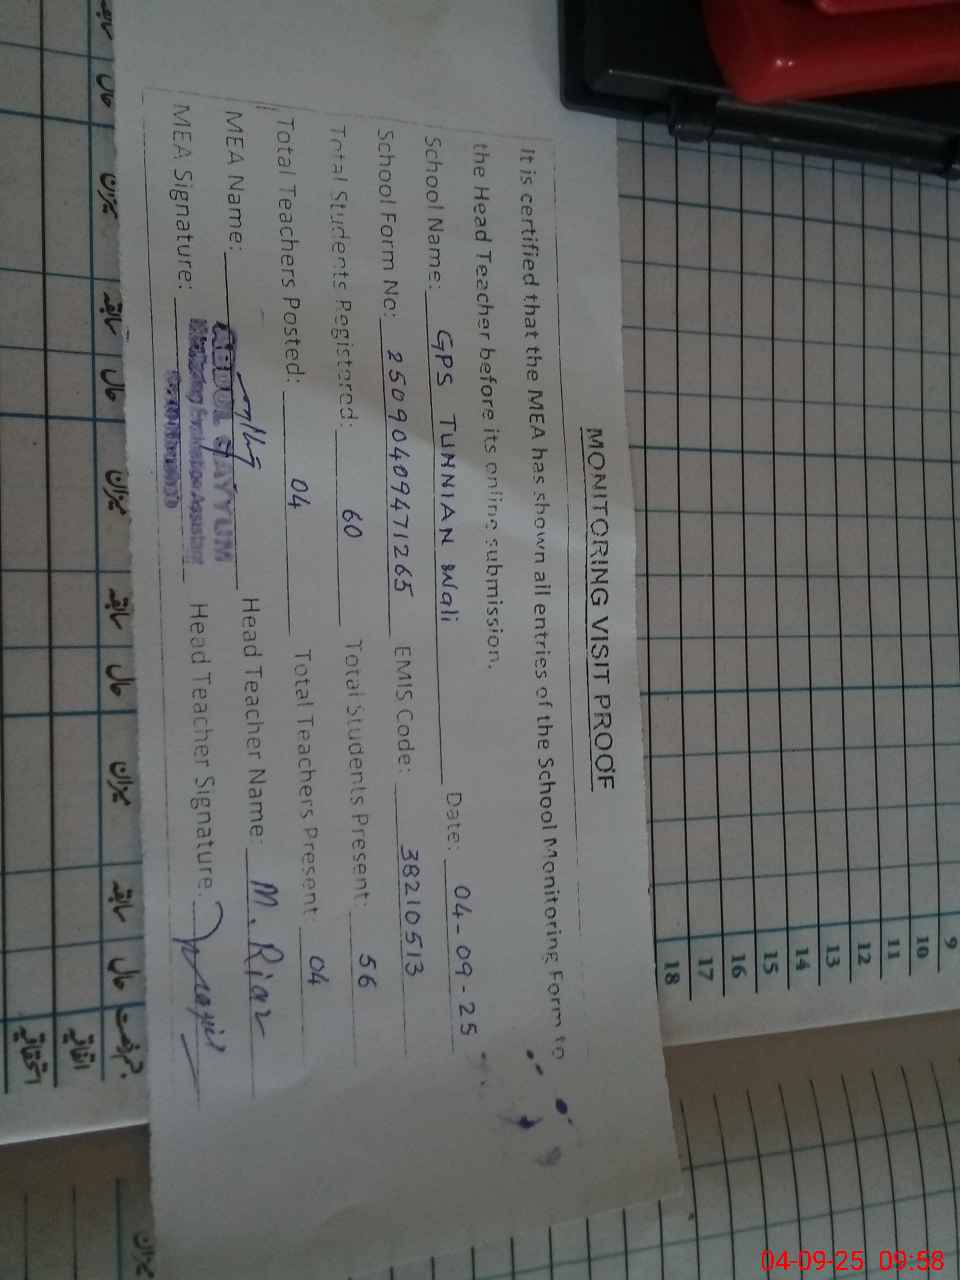 MONITORING VISIT PROOF
It is certified that the MEA has shown all entries of the School Monitoring Form to
the Head Teacher before its online submission.
School Name: GPS TUNNIAN Wali Date: 04-09-25
School Form No: 25090409471265 EMIS Code: 38210513
Total Students Registered: 60 Total Students Present: 56
Total Teachers Posted: 04 Total Teachers Present: 04
MEA Name: ABDUL QAYYUM Head Teacher Name: M. Riaz
MEA Signature: Head Teacher Signature:
Monitoring Evaluation Assistant
9
10
11
12
13
14
15
16
17
18
سابقہ حال میزان سابقہ حال میزان سابقہ حال میزان سابقہ حال
اتفاقیہ
استحقاقیہ
میزان
04-09-25 09:58